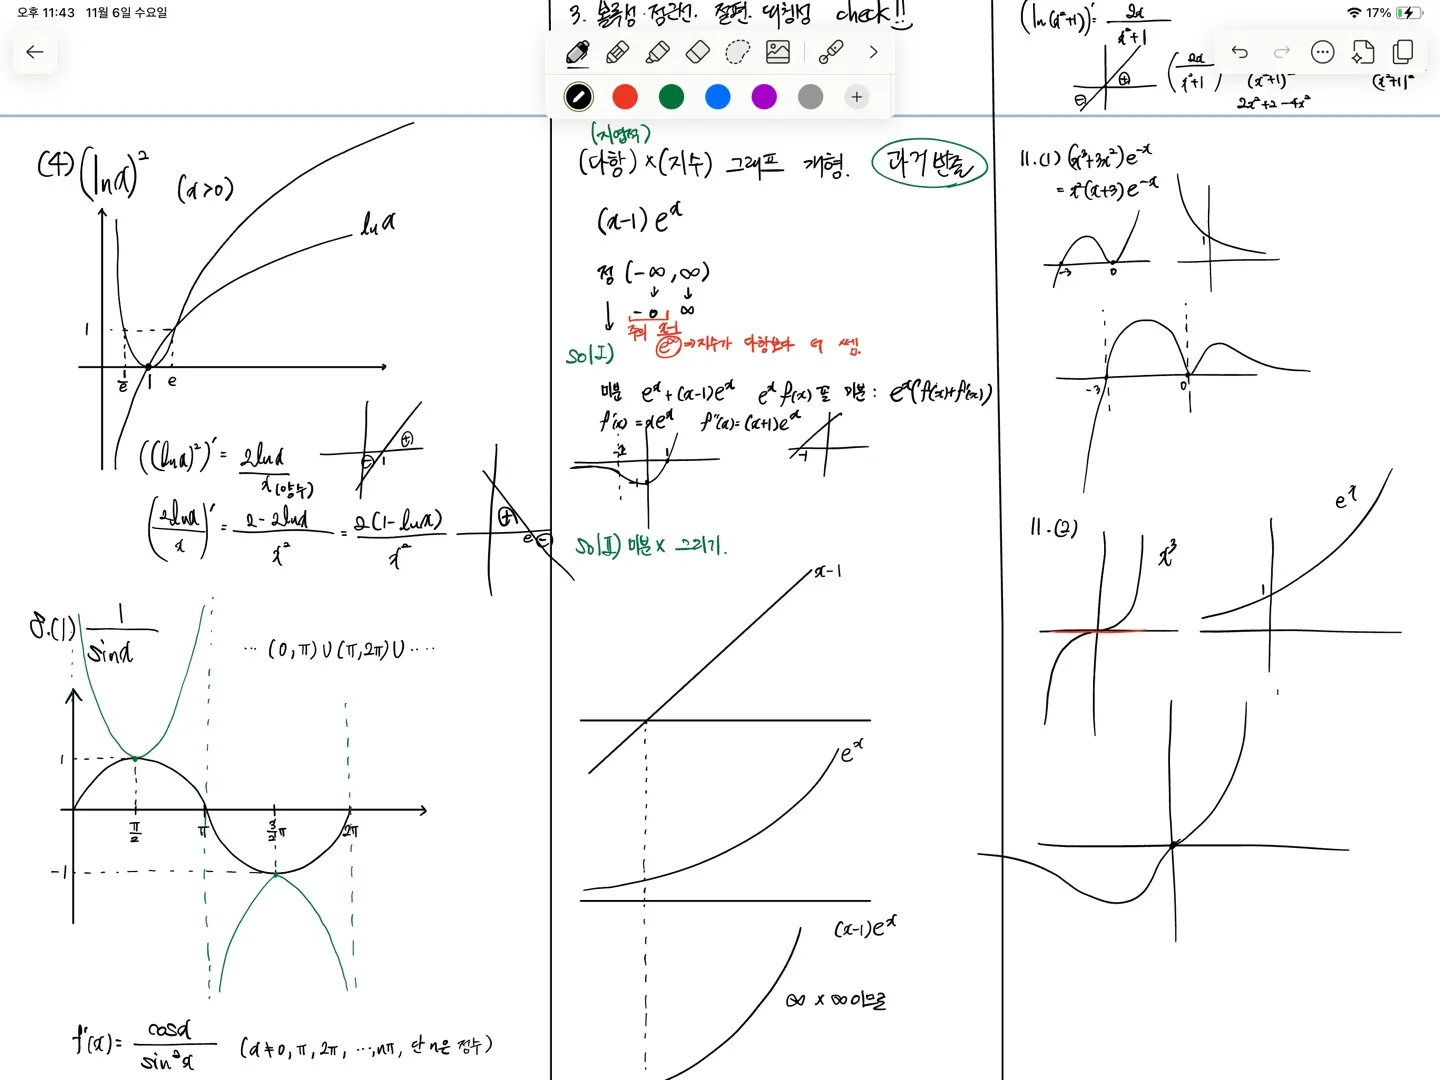 오후 11:43 11월 6일 수요일
17%
3. 볼록성·점근선. 절편. 대칭성 check!!
(4) (lnx)² (x>0)
lnx
1
1/e 1 e
((lnx)²)' = 2lnx / x(양수)
⊖ 1 ⊕
(2lnx / x)' = 2-2lnx / x² = 2(1-lnx) / x²
⊕ e ⊖
8.(1) 1 / sinx
… (0,π)∪(π,2π)∪ ‥‥
1
π/2 π 3/2π 2π
-1
f'(x)= cosx / sin²x (x≠0, π, 2π, …,nπ, 단 n은 정수)
(지엽적)
(다항)×(지수) 그래프 개형. 과거 빈출
(x-1)e^x
정 (-∞, ∞)
↓ ↓
↓ -0 ∞
주의 x-1 / e^∞ ⇒지수가 다항보다 더 쎔.
sol(Ⅰ)
미분 e^x+(x-1)e^x e^x f(x) 꼴 미분: e^x(f(x)+f'(x))
f'(x) = xe^x f''(x)=(x+1)e^x
1
-1
-1
sol(Ⅱ) 미분× 그리기.
x-1
e^x
(x-1)e^x
∞×∞이므로
(ln(x²+1))' = 2x / x²+1
⊖ ⊕
(2x / x²+1
(x²+1)²
2x²+2-4x²
11.(1) (x³+3x²)e^-x
= x²(x+3)e^-x
-3 0
1
-3 0
11.(2)
x³
e^x
1